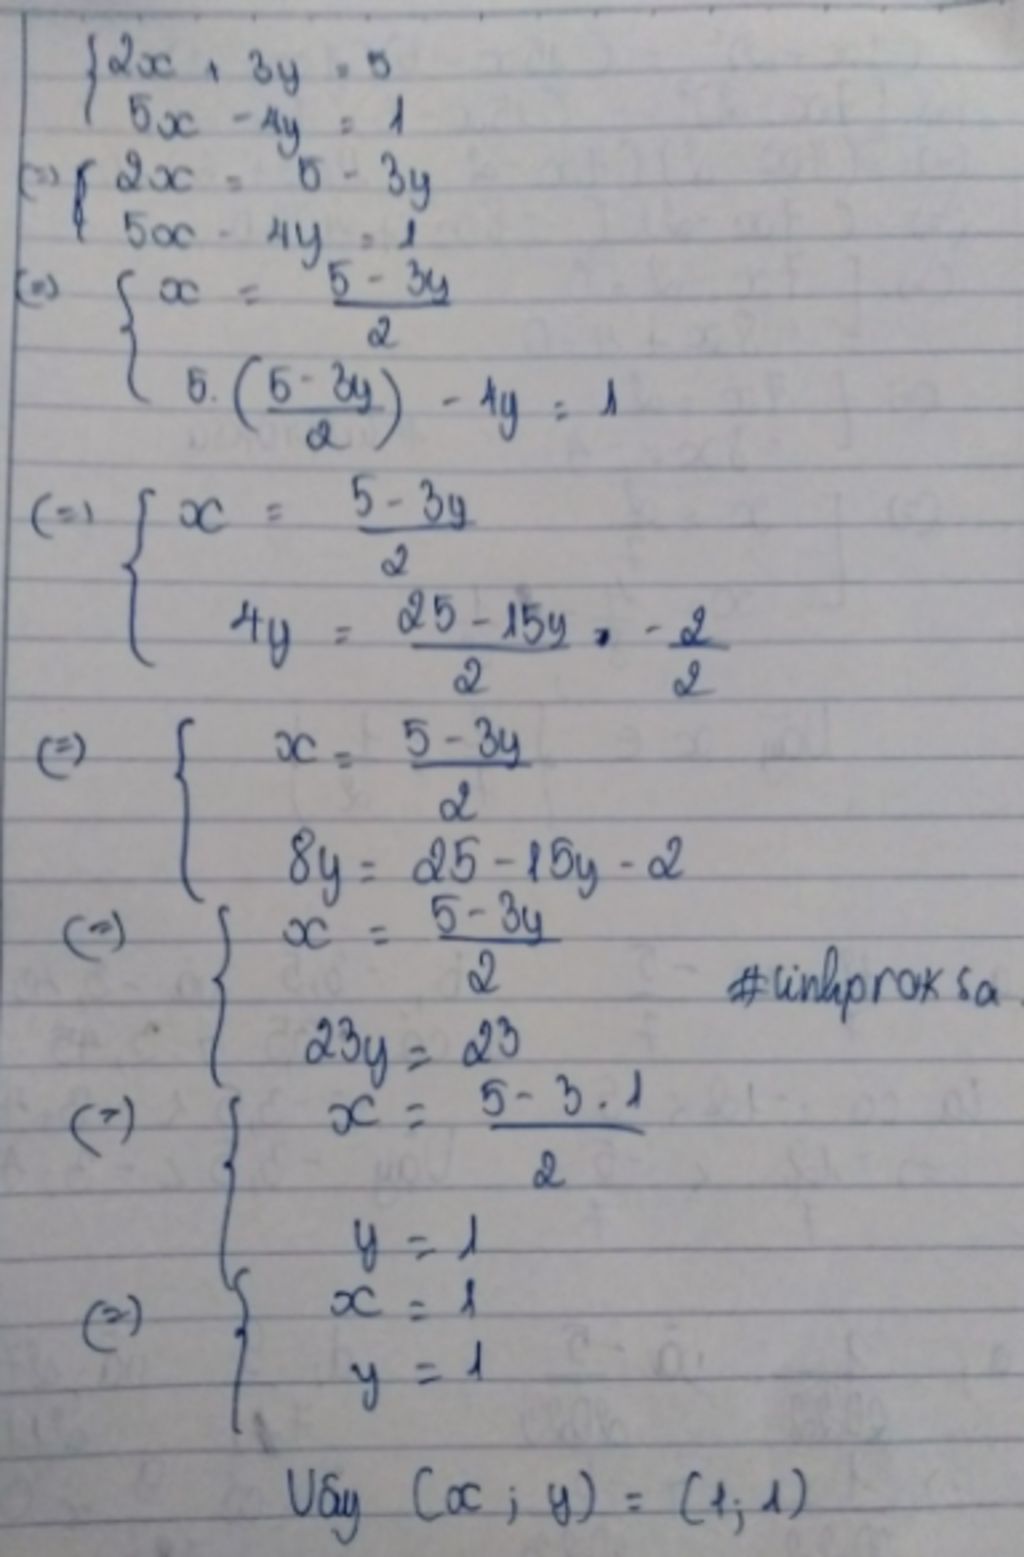 {2x + 3y = 5
5x - 4y = 1
(=) {2x = 5 - 3y
5x - 4y = 1
(=) {x = \frac{5 - 3y}{2}
5. (\frac{5 - 3y}{2}) - 4y = 1
(=) {x = \frac{5 - 3y}{2}
4y = \frac{25 - 15y}{2} - \frac{2}{2}
(=) {x = \frac{5 - 3y}{2}
8y = 25 - 15y - 2
(=) {x = \frac{5 - 3y}{2}
#linhproxsa
23y = 23
(=) {x = \frac{5 - 3.1}{2}
y = 1
(=) {x = 1
y = 1
Vây (x ; y) = (1; 1)